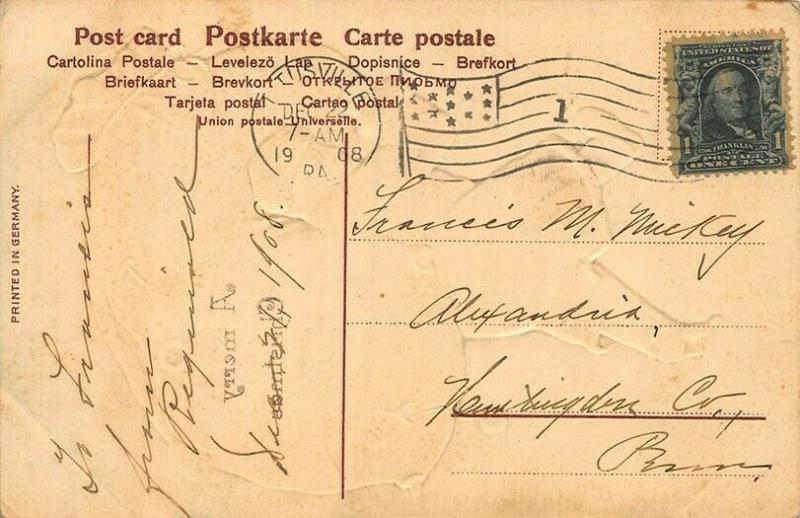 Post card Postkarte Carte postale
Cartolina Postale – Levelező Lap – Dopisnice – Brefkort
Briefkaart – Brevkort – ОТКРЫТОЕ ПИСЬМО
Tarjeta postal – Cartao postal
Union postale Universelle.
TITUSVILLE
DEC 22
7-AM
1908
PA.
1
SERIES 1902
UNITED STATES OF
AMERICA
FRANKLIN
1 1
POSTAGE
ONE CENT
PRINTED IN GERMANY.
To Francis
from
Reginald
1908.
A merry
Christmas
Francis M. Mickey
Alexandria,
Huntingdon Co.,
Penn.